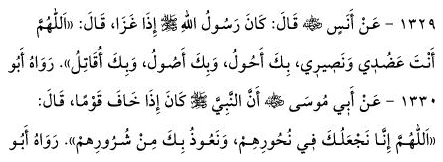 ١٣٢٩ - عَنْ أَنَسٍ ﷺ قَالَ: كَانَ رَسُولُ اللهِ ﷺ إِذَا غَزَا، قَالَ: «اَللّٰهُمَّ
أَنْتَ عَضُدِي وَنَصِيرِي، بِكَ أَحُولُ، وَبِكَ أَصُولُ، وَبِكَ أُقَاتِلُ». رَوَاهُ أَبُو
١٣٣٠ - عَنْ أَبِي مُوسَى أَنَّ النَّبِيَّ ﷺ كَانَ إِذَا خَافَ قَوْمًا، قَالَ:
«اَللّٰهُمَّ إِنَّا نَجْعَلُكَ فِي نُحُورِهِمْ، وَنَعُوذُ بِكَ مِنْ شُرُورِهِمْ». رَوَاهُ أَبُو